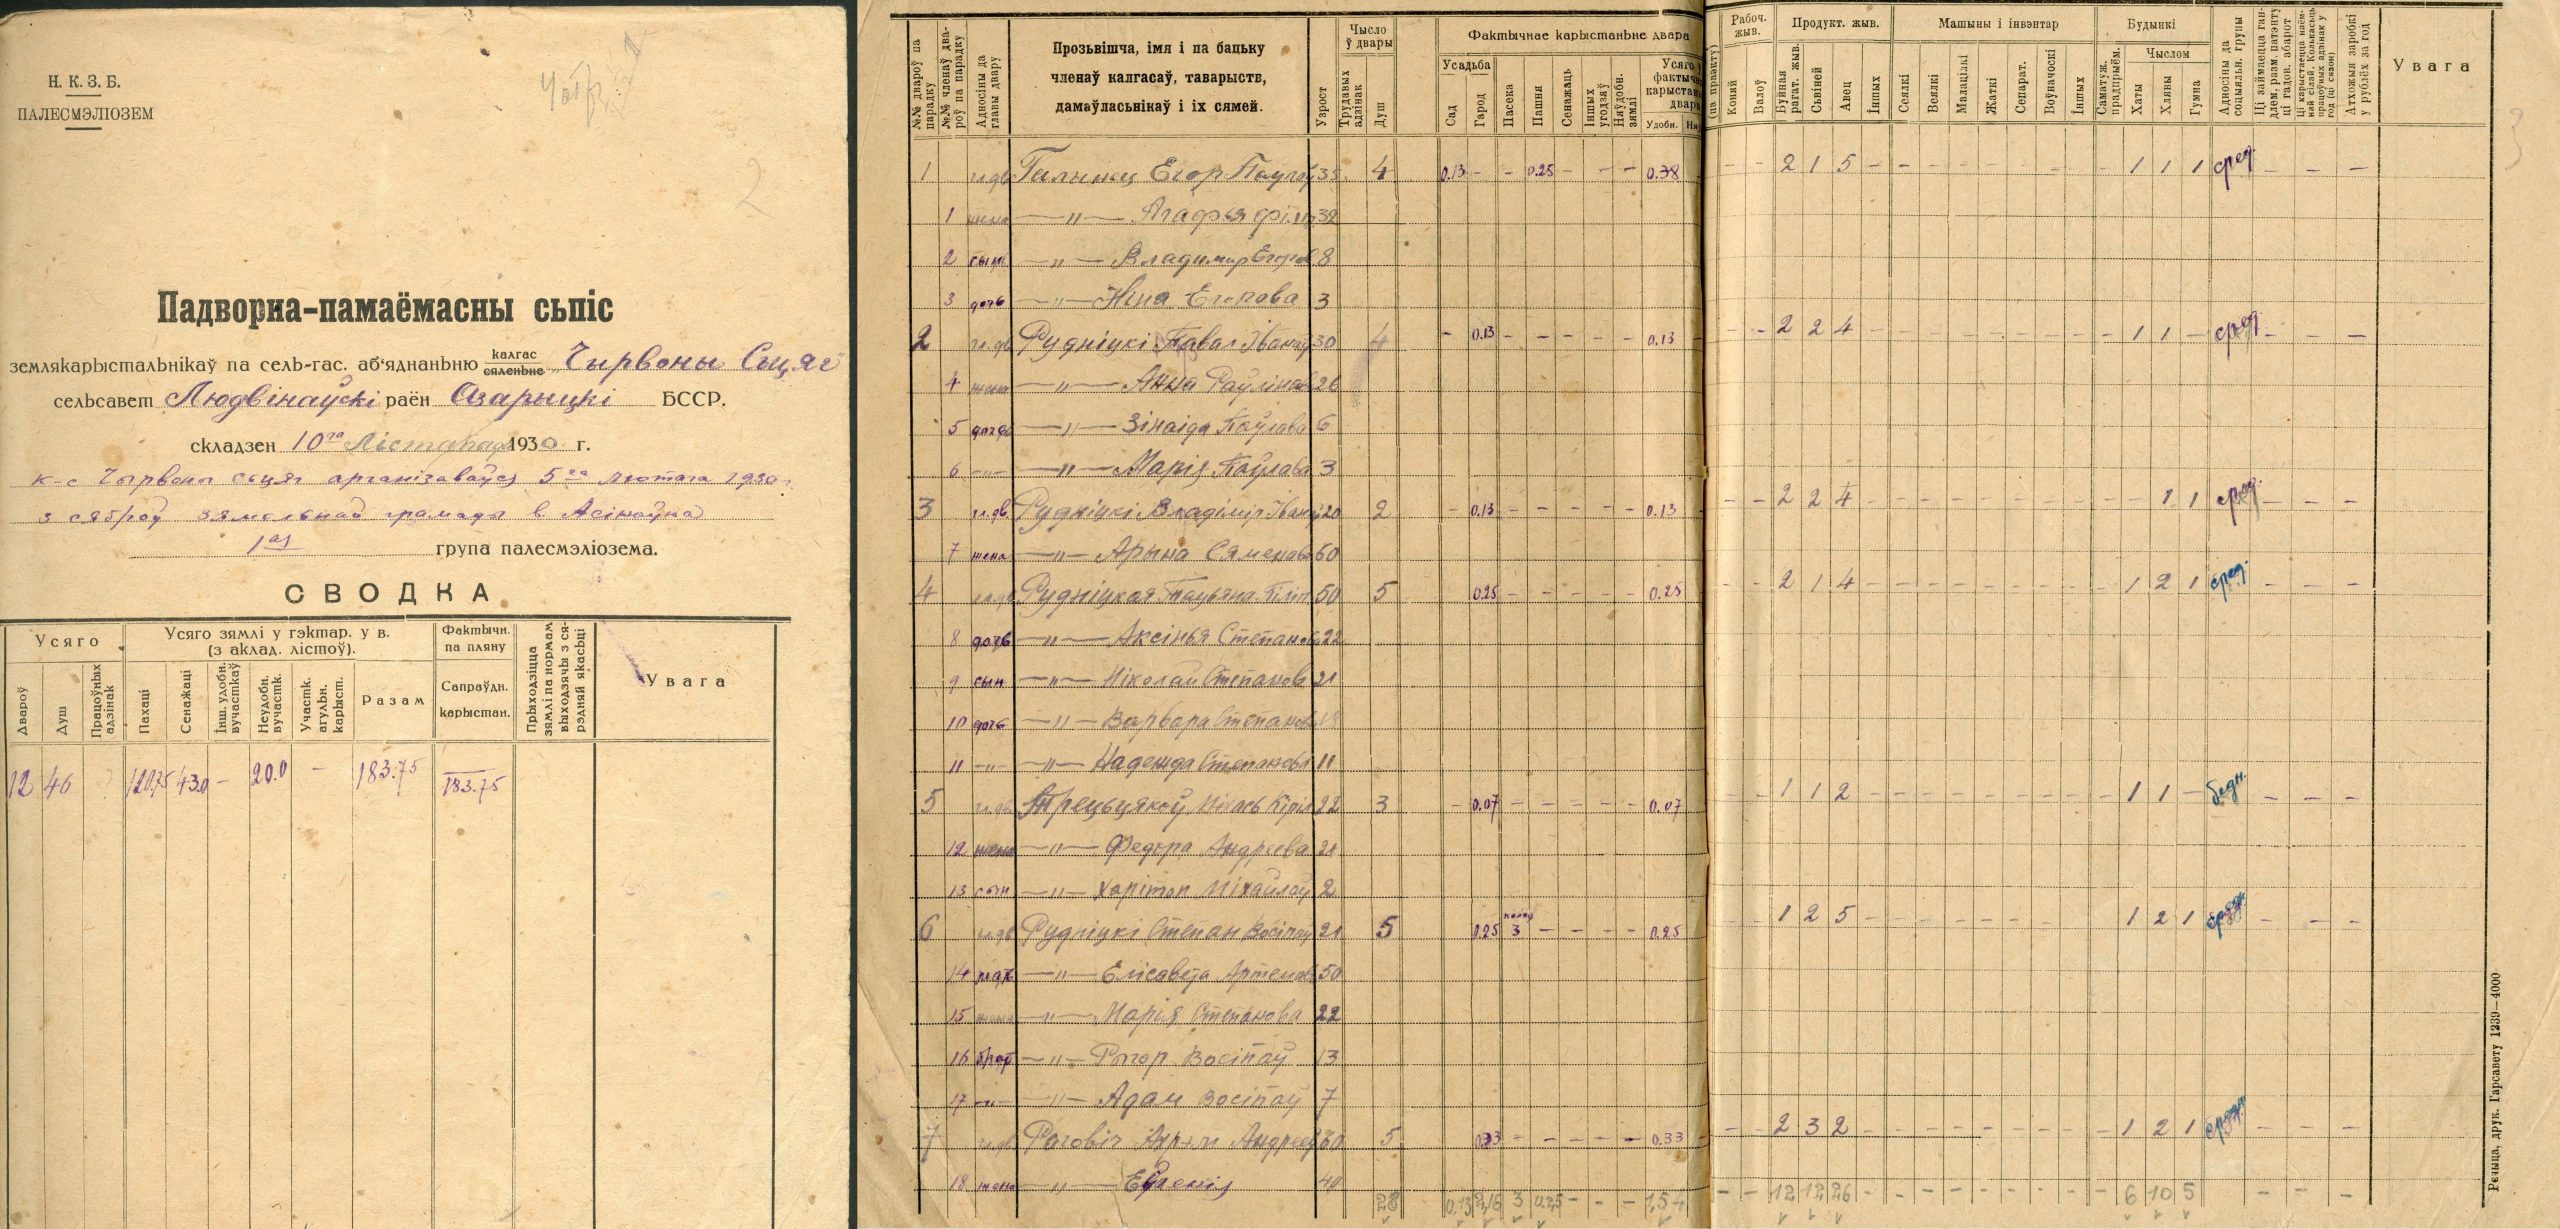 Н. К. З. Б.
ПАЛЕСМЭЛІОЗЕМ
2
Падворна-памаёмасны сьпіс
землякарыстальнікаў па сель-гас. аб'яднаньню калгас сяленьне „Чырвоны Сьцяг"
сельсавет Людвінаўскі раён Азарыцкі БССР.
складзен 10га Лістапада 1930 г.
к-с Чырвоны сьцяг арганізаваўся 5га лютага 1930 г.
з сяброў зямельнай грамады в. Асінаўка
1ая група палесмэліозема.
СВОДКА
Усяго
Усяго зямлі у гэктар. у в. (з аклад. лістоў).
Фактычн. па пляну
Сапраўдн. карыстан.
Прыходзіцца зямлі па нормам выходзячы з ся-рэдняй якасьці
Увага
Двароў
Душ
Працоўных адзінак
Пахаці
Сенажаці
Інш. удобн. вучасткаў
Неудобн. вучастк.
Участк. агульн. карыст.
Разам
12 46 120.75 43.0 – 20.0 – 183.75 183.75
№№ двароў па парадку
№№ членаў два-роў па парадку
Адносіны да главы двару
Прозьвішча, імя і па бацьку
членаў калгасаў, таварыств,
дамаўласьнікаў і іх сямей.
Узрост
Чысло ў двары
Трудавых адзінак
Душ
Фактычнае карыстаньне двара
Усадьба
Сад
Гарод
Пасека
Пашня
Сенажаць
Іншых угодзяў
Няўдобн. зямлі
Усяго
фактычн
карыстан
двара
Удобн.
(па праэкту)
Рабоч. жыв.
Коняй
Валоў
Продукт. жыв.
Буйная рагат. жыв.
Сьвіней
Авец
Іншых
Машыны і інвэнтар
Сеялкі
Веялкі
Малацілкі
Жаткі
Сепарат.
Воўначоскі
Іншых
Будынкі
Саматуж. прадпрыём.
Чыслом
Хаты
Хлявы
Гумна
Адносіны да соцыльн. групы
Ці займаецца ган-длем, разм. патэнту ці гадон. абарот
Ці карыстаецца наём-най сілай. Колькасьць працоўных адзінак у год (ці сязон)
Атхожыя заробкі у рублёх за год
Увага
3
1 гл.дв 35 4 0.13 – – 0.25 – – – 0.38 – – 2 1 5 – – – – – 1 1 1 сред. – – –
1 жена —"— Агафья 32
2 сын —"— Владимир Егоров 8
3 дочь —"— Ніна Егорава 3
2 гл.дв Рудніцкі Павал Іванаў 30 4 – 0.13 – – – – – 0.13 – – 2 2 4 – – – – – – – – – 1 1 – сред. – – –
4 жена —"— Анна 26
5 дочь —"— Зінаіда Паўлава 6
6 –"– —"— Марія Паўлава 3
3 гл.дв. Рудніцкі Владімір Іванаў 20 2 – 0.13 – – – – – 0.13 – – 2 2 4 – – – – – – – – – – 1 1 сред. – – –
7 жена —"— Арына Сяменава 60
4 гл.дв Рудніцкая Тацьяна Піліп 50 5 0.25 – – – – – 0.25 – – 2 1 4 – – – – – – – – – 1 2 1 сред. – – –
8 дочь —"— Аксінья Степанова 22
9 сын —"— Ніколай Степанов 21
10 дочь —"— Варвара Степанов
11 –"– —"— Надежда Степанова 11
5 гл.дв Трецьцякоў 22 3 – 0.07 – – – – – 0.07 – – 1 1 2 – – – – – – – – – 1 1 – бедн. – – –
12 жена —"— Федора Андреева 21
13 сын —"— Харітон Міхайлаў 2
6 гл.дв Рудніцкі Степан Восіпаў 21 5 0.25 3 – – – – 0.25 – – 1 2 5 – – – – – – – – 1 2 1 – – –
14 мать —"— Елісавета Артемов 50
15 жена —"— Марія Степанова 22
16 брат —"— Рыгор Восіпаў 13
17 –"– —"— Адам Восіпаў 7
7 гл.дв Раговіч Андреев 60 5 0.33 – – – – – 0.33 – – 2 3 2 – – – – – – – – – 1 2 1 – – –
18 жена —"— Евгенія 40
28 0.13 3 0.25 – – – – – 12 12 26 – – – – – – – – – 6 10 5 – – –
Рэчыца, друк. Гарсавету 1239—4000